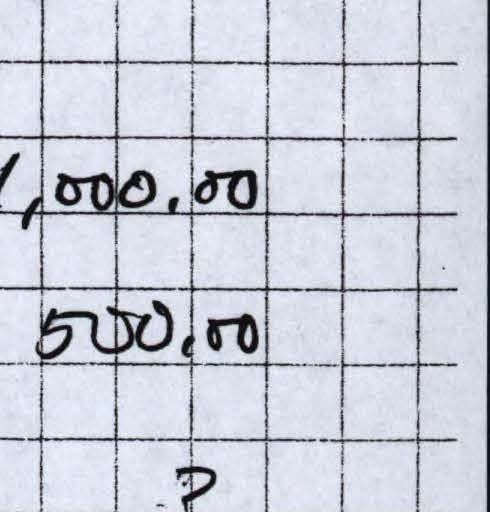 1,000.00
500.00
?